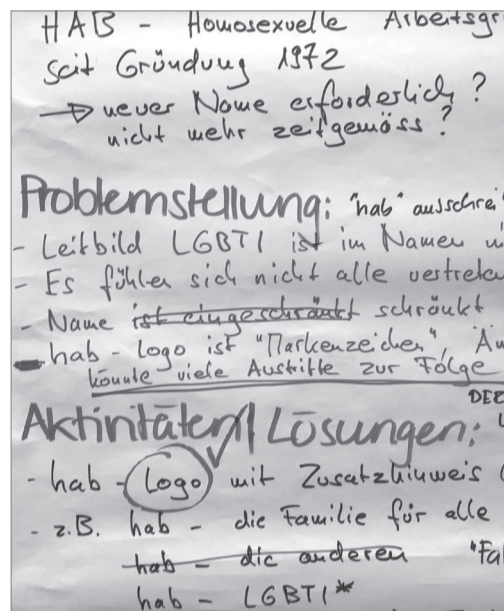 HAB - Homosexuelle Arbeitsgr
seit Gründung 1972
→ neuer Name erforderlich ?
nicht mehr zeitgemäss ?
Problemstellung: "hab" ausschrei
- Leitbild LGBTI ist im Namen
- Es fühlen sich nicht alle vertreten
- Name ist eingeschränkt schränkt
- hab - logo ist "Markenzeichen", Än
könnte viele Austritte zur Folge
DEZ
Aktivitäten/Lösungen:
- hab - Logo mit Zusatzhinweis (
- z.B. hab - die Familie für alle
hab - die anderen "Fa
hab - LGBTI*